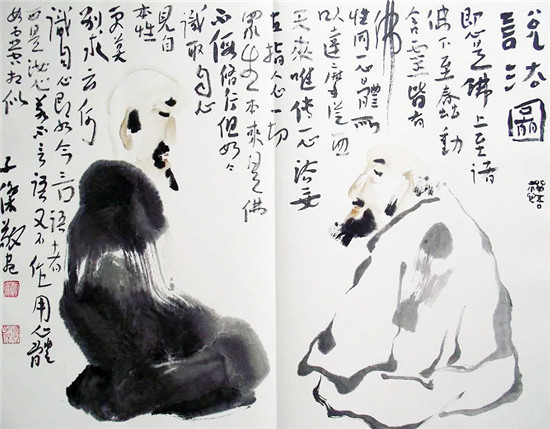 說法圖
即心是佛上至諸
佛下至蠢動
含靈皆有
佛
性同一心體所
以達摩從西
天來唯傳一心法
直指人心一切
眾生本來是佛
不假修行但如今
識取自心
見自
本性
更莫
別求云何
識自心即如今言語者
正是汝心若不言語又不作用心體
如虛空相似